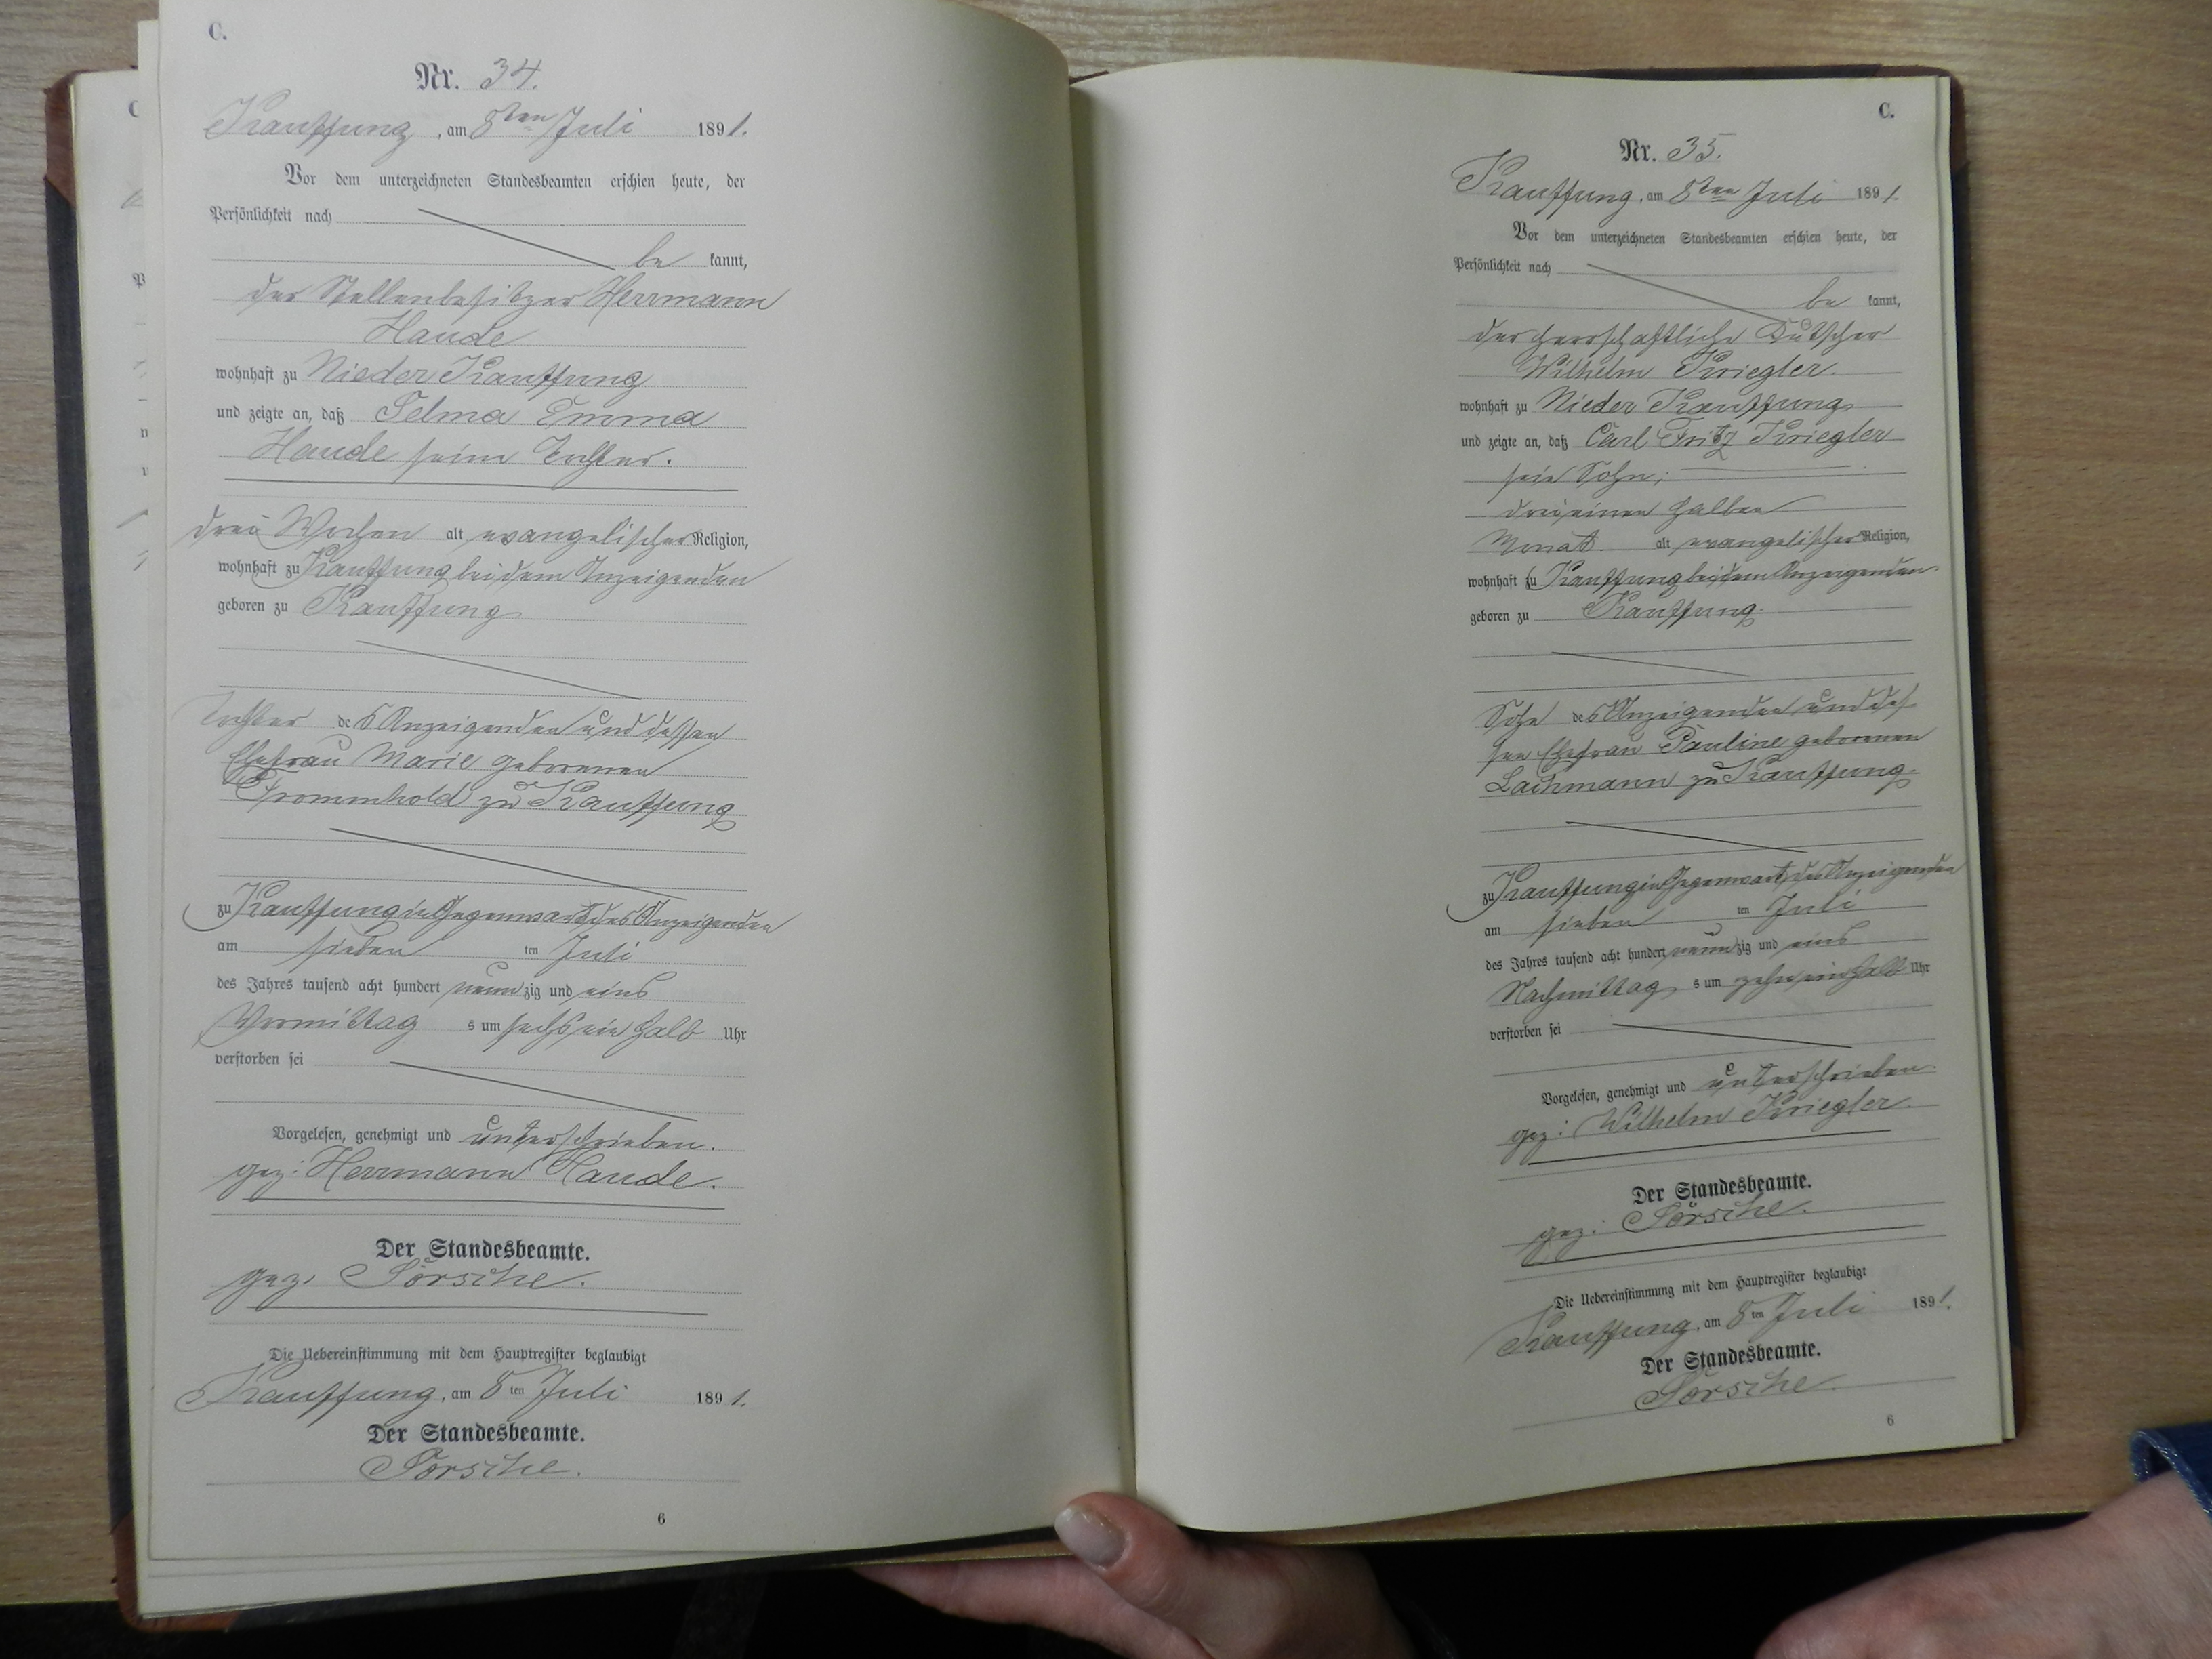 C.
Nr. 34.
Kauffung, am 8ten Juli 1891.
Vor dem unterzeichneten Standesbeamten erschien heute, der
Persönlichkeit nach
be kannt,
der Stellenbesitzer Herrmann
Hande
wohnhaft zu Nieder Kauffung
und zeigte an, daß Selma Emma
Hande seine Tochter.
drei Wochen alt evangelischer Religion,
wohnhaft zu Kauffung bei dem Anzeigenden
geboren zu Kauffung
Tochter des Anzeigenden und dessen
Ehefrau Marie geborenen
Frommhold zu Kauffung
zu Kauffung in Gegenwart des Anzeigenden
am sieben ten Juli
des Jahres tausend acht hundert neunzig und eins
Vormittags um sechs ein halb Uhr
verstorben sei
Vorgelesen, genehmigt und unterschrieben.
gez: Herrmann Hande.
Der Standesbeamte.
gez. Sörsche.
Die Uebereinstimmung mit dem Hauptregister beglaubigt
Kauffung, am 8ten Juli 1891.
Der Standesbeamte.
Sörsche.
6
C.
Nr. 35.
Kauffung, am 8ten Juli 1891.
Vor dem unterzeichneten Standesbeamten erschien heute, der
Persönlichkeit nach
be kannt,
der herrschaftliche Kutscher
Wilhelm Kriegler.
wohnhaft zu Nieder Kauffung
und zeigte an, daß Carl Fritz Kriegler
sein Sohn;
drei einen halben
Monat alt evangelischer Religion,
wohnhaft zu Kauffung bei dem Anzeigenden
geboren zu Kauffung.
Sohn des Anzeigenden und des-
sen Ehefrau Pauline geborenen
Lachmann zu Kauffung.
zu Kauffung in Gegenwart des Anzeigenden
am sieben ten Juli
des Jahres tausend acht hundert neunzig und eins
Nachmittags um zehn ein halb Uhr
verstorben sei
Vorgelesen, genehmigt und unterschrieben.
gez: Wilhelm Kriegler.
Der Standesbeamte.
gez. Sörsche.
Die Uebereinstimmung mit dem Hauptregister beglaubigt
Kauffung, am 8ten Juli 1891.
Der Standesbeamte.
Sörsche.
6